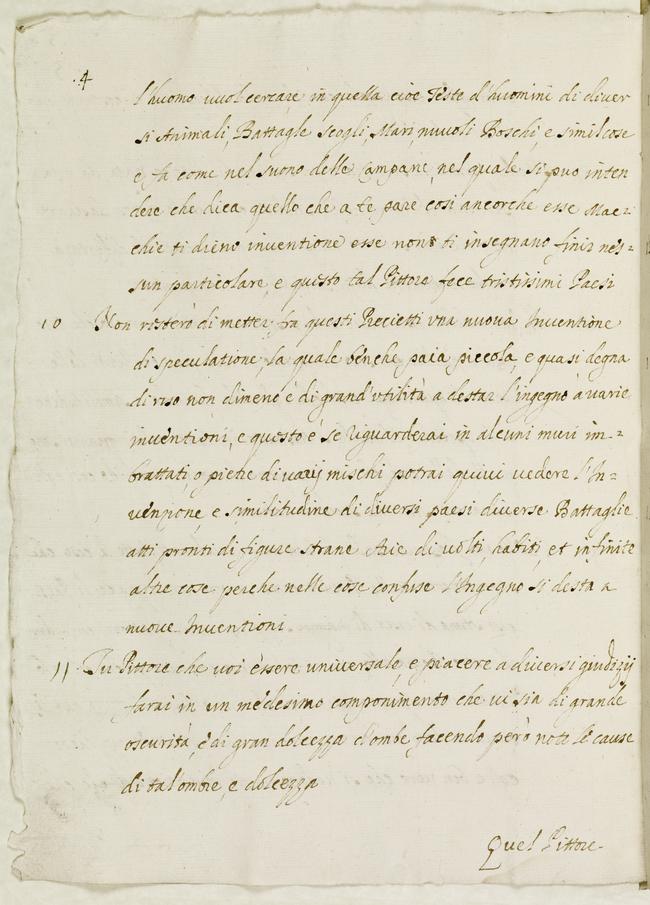 .4
l'huomo vuol cercare in quella cioe Teste d'huomini di diver
si Animali, Battagle scogli, Mari, nuvoli Boschi, e simil cose
e fa come nel suono delle Campane, nel quale si puo inten
dere che dica quello che a te pare cosi ancorche esse Mac
chie ti dieno inventione esse non ti insegnano finir nes=
sun particolare, e questo tal Pittore fece tristissimi Paesi
10 Non resterò di metter fra questi Precietti una nuova Inventione
di speculatione, la quale benche paia piccola, e quasi degna
di riso non dimeno è di grand'utilità a destar l'ingegno à varie
inventioni, e questo è se riguarderai in alcuni muri im=
brattati, o pietre di varij mischi potrai quivi vedere l'In=
venzione, e similitudine di diversi paesi diverse Battaglie
atti pronti di figure strane Arie di volti, habiti, et infinite
altre cose perche nelle cose confuse l'Ingegno si desta a
nuove Inventioni
11 Tu Pittore che voi essere universale, e piacere a diversi giudizij
farai in un medesimo componimento che vi sia di grande
oscurità, e di gran dolcezza d'ombe, facendo però note le cause
di tal'ombre, e dolcezza
Quel Pittore